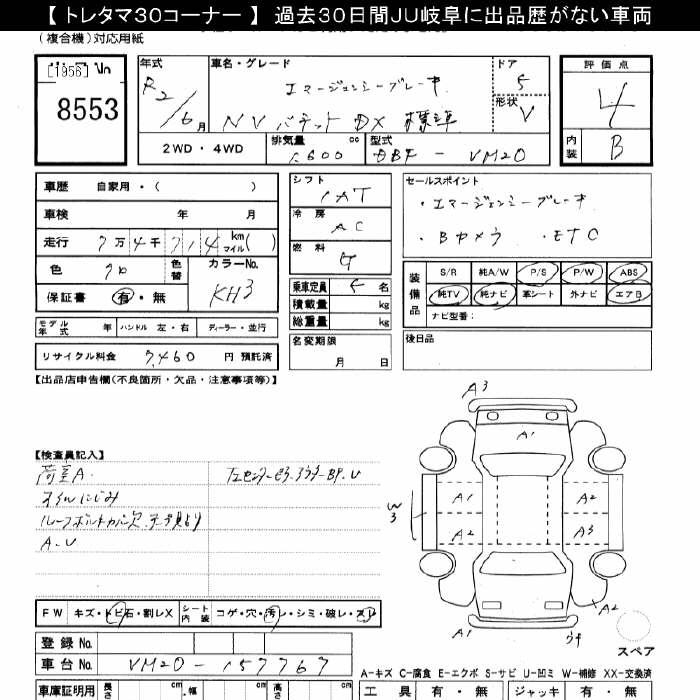 【 トレタマ３０コーナー 】 過去３０日間ＪＵ岐阜に出品歴がない車両
(複合機)対応用紙
8553
年式
R2/6月
車名・グレード
エマージェンシーブレーキ
NV バネット DX 標準
ドア
5
形状
V
評価点
4
内装
B
2WD ・ 4WD
排気量
1600 cc
型式
DBF - VM20
車歴 自家用・( )
車検 年 月
走行 7万4千714 km マイル( )
色 クロ 色替
カラーNo.
KH3
保証書 有・無
モデル年式 年 ハンドル 左・右 ディーラー・並行
リサイクル料金 7,460 円 預託済
シフト
IAT
冷房
AC
燃料
G
乗車定員 5 名
積載量 kg
総重量 kg
名変期限
月 日
セールスポイント
・エマージェンシーブレーキ
・Bカメラ ・ETC
装備品
S/R 純A/W P/S P/W ABS
純TV 純ナビ 革シート 外ナビ エアB
ナビ型番：
後日品
【出品店申告欄(不良箇所・欠品・注意事項等)】
【検査員記入】
荷室A.
オイルにじみ
A.U
A3
A1
W3
A1 A2
A2 A3
A2
A1
スペア
FW キズ・トビ石・割レX シート内装 コゲ・穴・汚レ・シミ・破レ・スレ
登録 No.
車台 No. VM20-157767
A－キズ C－腐食 E－エクボ S－サビ U－凹ミ W－補修 XX－交換済
車庫証明用 長さ cm 幅 cm 高さ cm
工具 有・無 ジャッキ 有・無